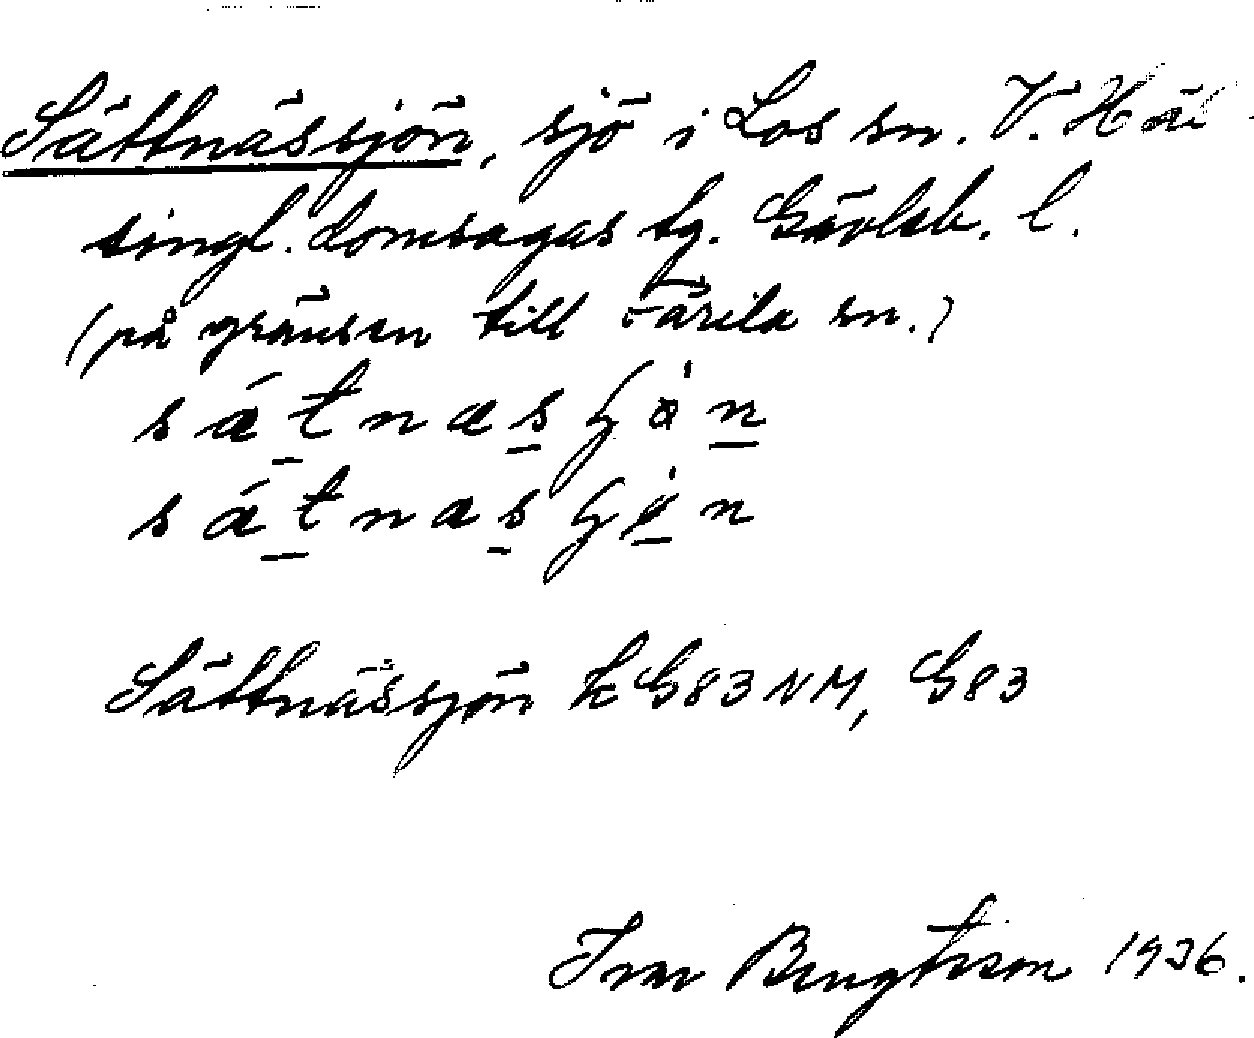 Sättnässjön, sjö i Los sn. V. Häl-
singl. domsagas tg. Gävleb. l.
(på gränsen till Färila sn.)
Sättnässjön K G83NM, G83
Ivar Bengtsson 1936.